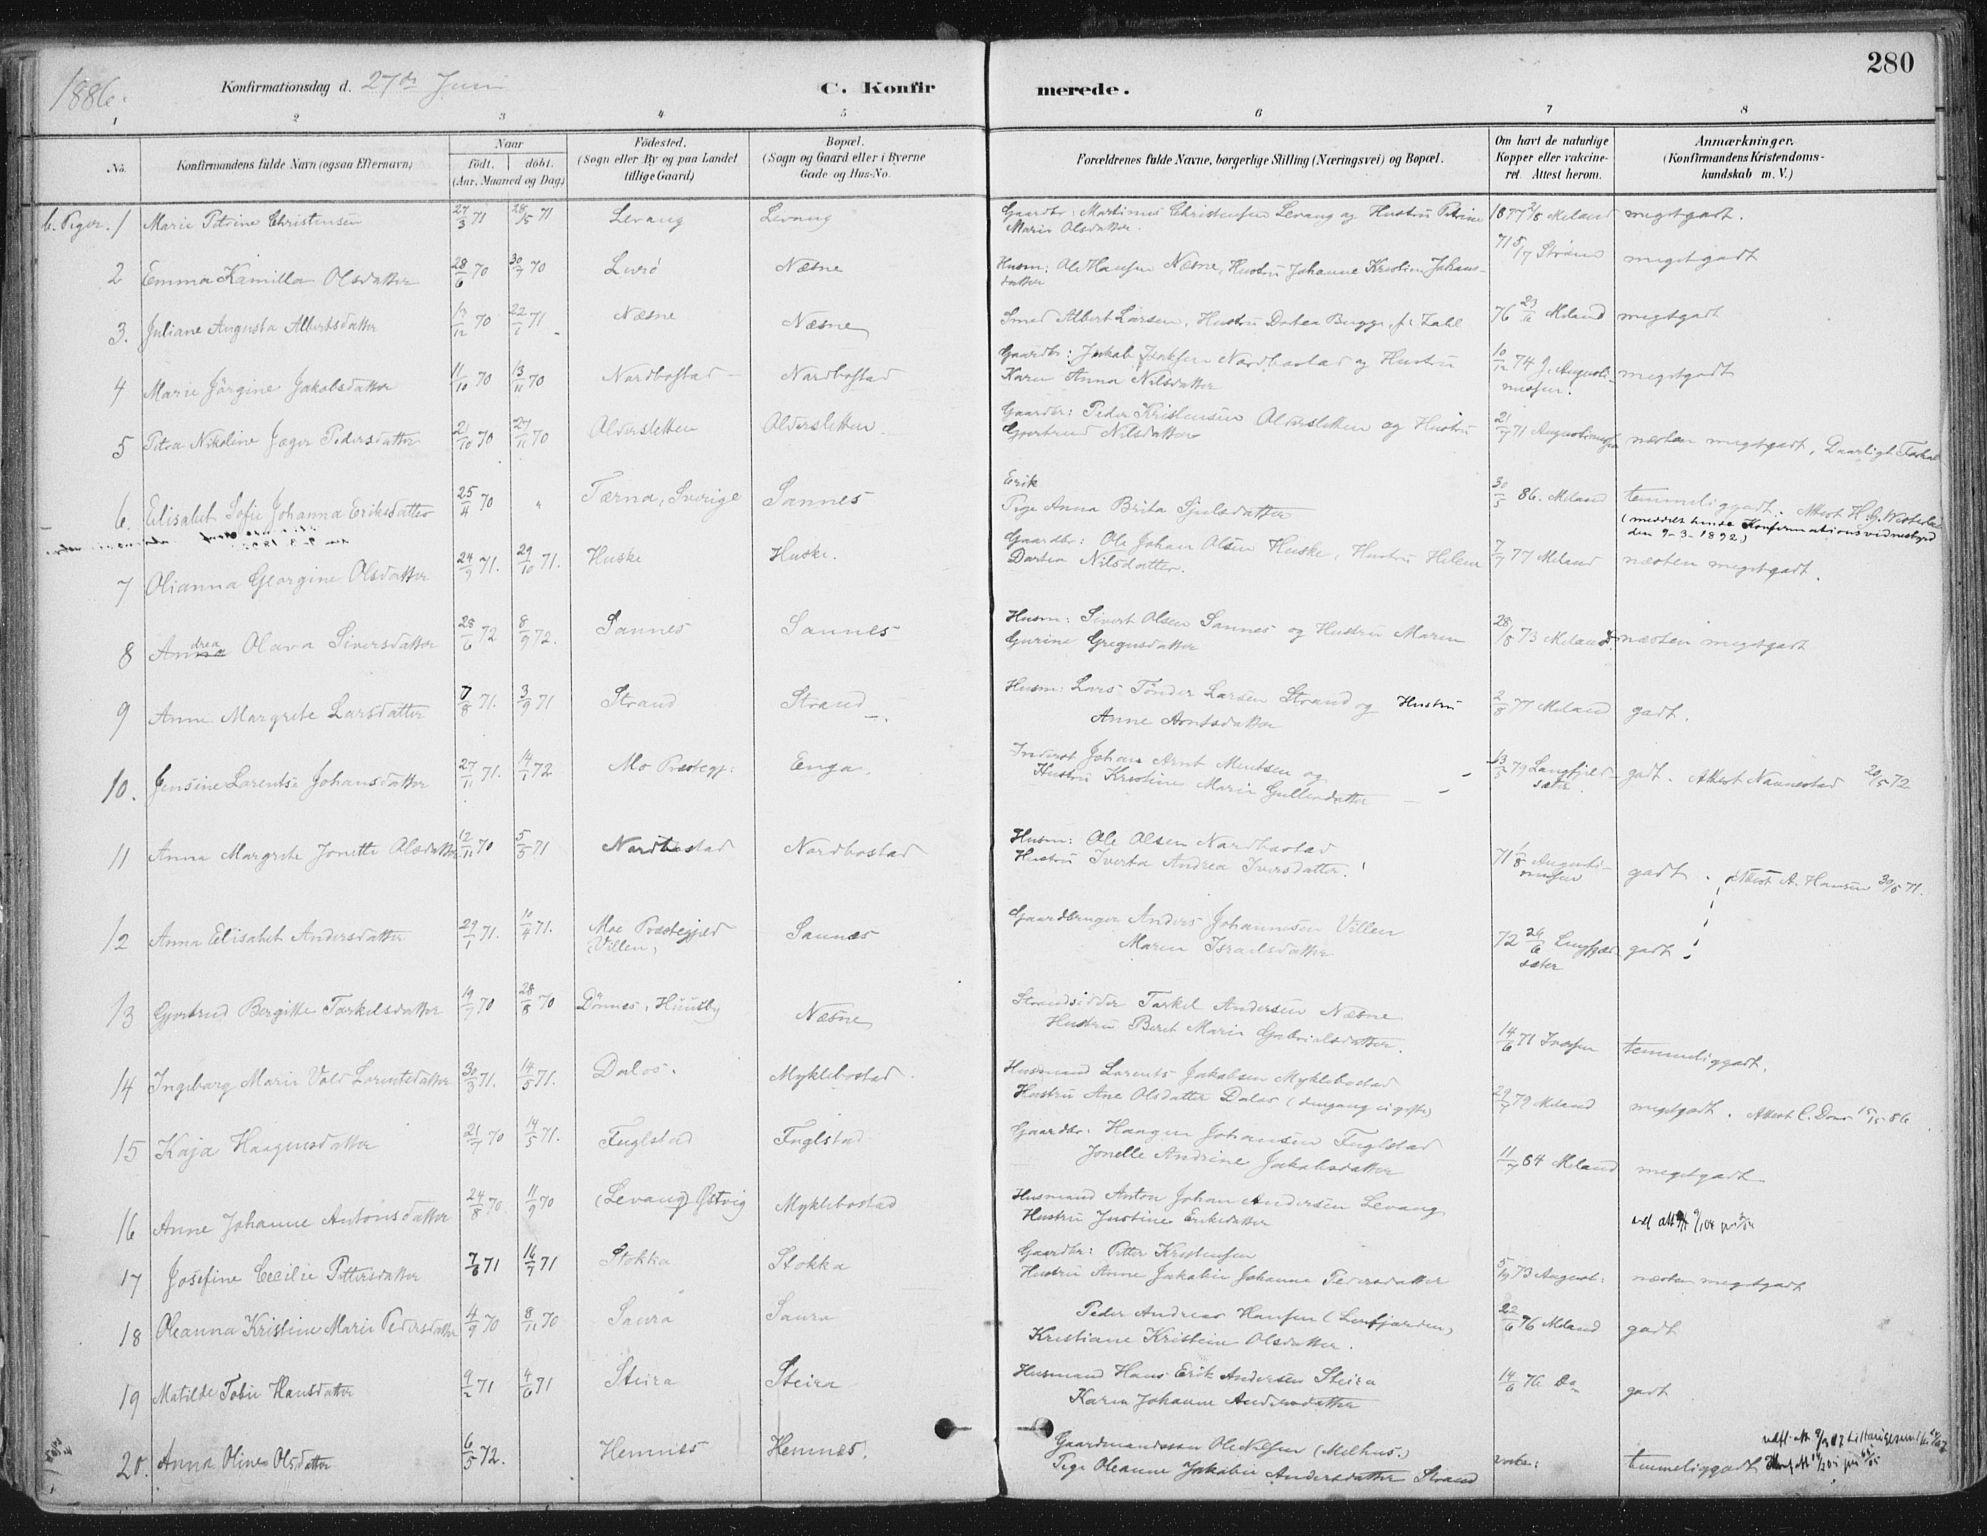 280
1886.
Konfirmationsdag d. 27de Juni
C. Konfirmerede.
1 2 3 4 5 6 7 8
No.
Konfirmandens fulde Navn (ogsaa Efternavn)
Naar
födt. döbt.
(Aar, Maaned og Dag)
Födested.
(Sogn eller By og paa Landet
tillige Gaard)
Bopæl.
(Sogn og Gaard eller i Byerne
Gade og Hus-No.
Forældrenes fulde Navne, borgerlige Stilling (Næringsvei) og Bopæl.
Om havt de naturlige
Kopper eller vakcine-
ret. Attest herom.
Anmærkninger.
(Konfirmandens Kristendoms-
kundskab m. V.)
b. Piger. 1 Marie Petrine Christensen 27/3 71 28/5 71 Levang Levang Gaardbr: Martinus Christensen Levang og Hustru Petrine 1877 2/8 Meland megetgodt.
Marie Olsdatter.
2 Emma Kamilla Olsdatter 28/6 70 30/7 70 Lurö Næsne Husm: Ole Hansen Næsne, Hustru Johanne Kristine Johans- 71 5/7 Ström megetgodt
datter
3. Juliane Augusta Albertsdatter 17/12 70 22/1 71 Næsne Næsne Smed Albert Larsen, Hustru Dortea Bugge, f: Zahl 76 23/6 Meland megetgodt
4 Marie Jörgine Jakobsdatter 11/10 70 13/11 70 Nordbostad Nordbostad Gaardbr: Jakob Isaksen Nordbostad og Hustru 10/12 74 J. Augusti- megetgodt
Karen Anna Nilsdatter nusen.
5 Petra Nikoline Jæger Pedersdatter 21/10 70 27/11 70 Aldersletten Aldersletten Gaardbr: Peder Kristensen Aldersletten og Hustru 21/7 71 Augustinusen næsten megetgodt, Daarligt Forhold
Gjertrud Nilsdatter
6. Elisabet Sofie Johanna Eriksdatter 25/4 70 " Tærna, Sverige Sannes Erik 30/5 86. Meland temmeliggodt. Attest H. G. Westerlu
Pige Anna Brita Sjulsdatter (meddelt hende Konfirmationsvidnesbyrd
den 9-3-1892)
7 Olianna Georgine Olsdatter 24/9 71. 29/10 71. Huske Huske. Gaardbr: Ole Johan Olsen Huske, Hustru Helene 7/7 77 Meland næsten megetgodt.
Dortea Nilsdatter.
8 Andrea Olava Siversdatter 28/6 72 8/9 72. Sannes Sannes Husm: Sivert Olsen Sannes og Hustru Maren 28/5 73 Meland. næsten megetgodt
Gurine Gregusdatter
9 Anne Margrete Larsdatter 7/8 71. 3/9 71 Strand Strand Husm: Lars Tönder Larsen Strand og Hustru 2/8 77 Meland godt.
Anne Arntsdatter
10. Jensine Lorentse Johansdatter 27/11 71. 14/1 72 Mo Præstegj: Enga. Inderst Johan Arnt Mentsen og 13/5 79 Langfjeld- godt. Attest Nannestad 20/5 72
Hustru Kristine Marie Gullensdatter sæter
11 Anna Margrete Jonette Olsdatter 12/11 70 5/5 71 Nordbostad Nordbostad Husm: Ole Olsen Nordbostad 71 1/8 Augusti- godt. Attest A. Hansen 30/5 71.
Hustru Iverta Andrea Iversdatter. nusen
12 Anna Elisabet Andersdatter 29/1 71. 10/4 71. Moe Præstegjæld Sannes Gaardbruger Anders Johannesen Villen 72 24/6 Langfjeld- godt
Villen, Maren Israelsdatter sæter
13 Gjertrud Bergitte Torkelsdatter 19/7 70 28/8 70 Dönnes, Huusby Næsne Strandsidder Torkel Andersen Næsne 14/6 71 Iversen temmeliggodt.
Hustru Beret Marie Gabrielsdatter.
14 Ingeborg Marie Vold Lorentsdatter 30/3 71. 14/5 71. Dalos. Myklebostad Husmand Lorents Jakobsen Myklebostad 29/7 79 Meland megetgodt. Attest C. Dons 15/5-86
Hustru Ane Olsdatter Dalos (dengang ei gifte)
15 Kaja Haagensdatter 21/7 70 14/5 71. Fuglstad Fuglstad Gaardbr: Haagen Johansen Fuglstad 11/7 84 Meland megetgodt
Jonelle Andrine Jakobsdatter
16 Anne Johanne Antonsdatter 24/8 70. 11/9 70 (Levang) Östvig Myklebostad Husmand Anton Johan Andersen Levang
Hustru Justine Eriksdatter
17 Josefine Cecilie Pettersdatter 7/6 71 16/7 71 Stokka Stokka Gaardbr: Petter Kristensen 5/9 73 August: næsten megetgodt
Hustru Anne Jakobie Johanna Pedersdatter
18 Oleanna Kristine Marie Pedersdatter 4/9 70 8/11 70 Saura Saura Peder Andreas Hansen (Leirfjorden) 22/6 76 Meland godt
Kristiane Kristine Olsdatter.
19 Matilde Tobie Hansdatter 9/2 71 4/6 71 Steira Steira Husmand Hans Erik Andersen Steira 14/6 76 Do godt
Karen Johanne Andersdatter
20. Anna Oline Olsdatter 6/5 72. Hemnes Hemnes. Gaardmandssøn Ole Nilsen (Melhus.) temmeliggodt
Pige Oleanne Jakobie Andersdatter Strand